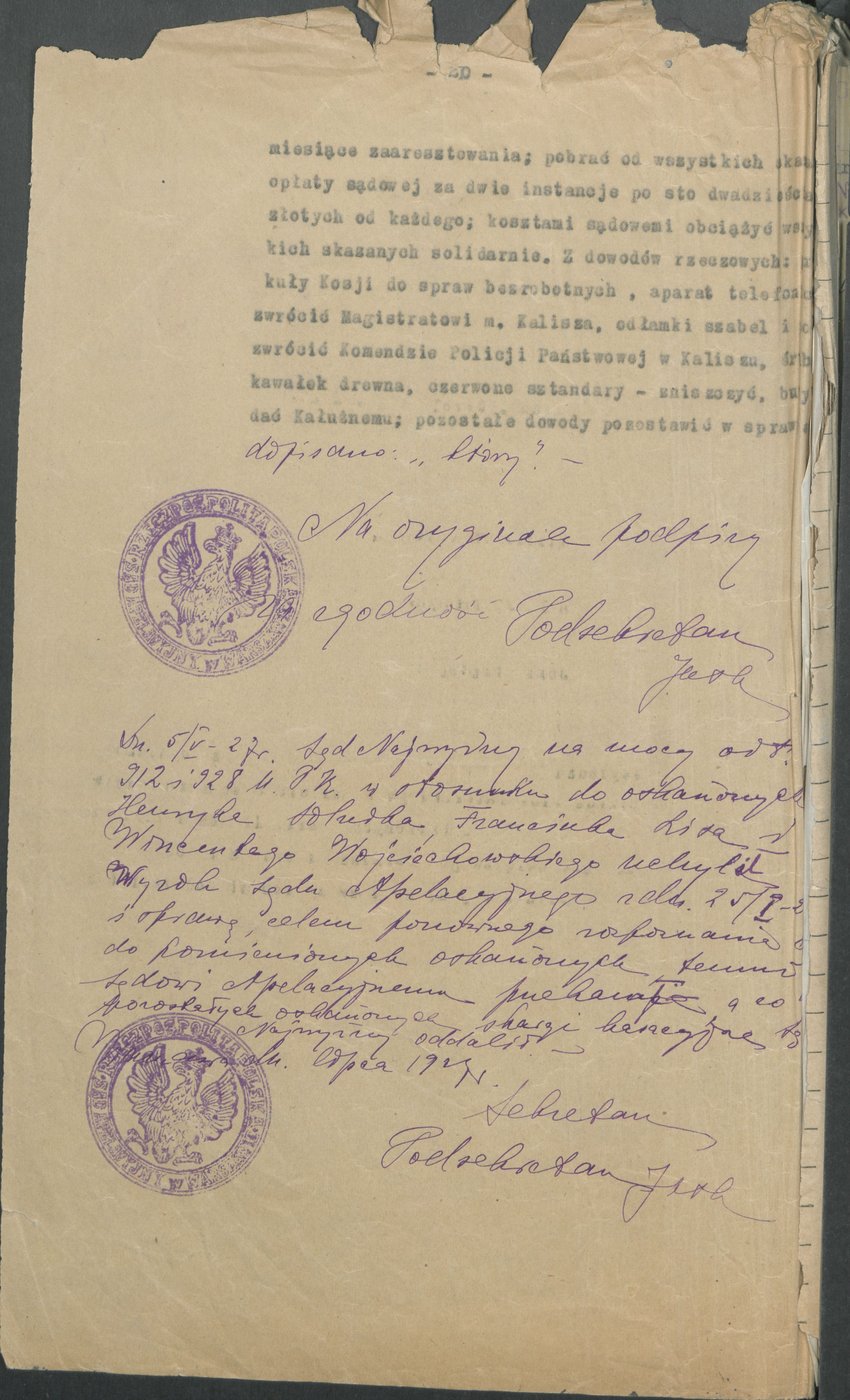 - 20 -
miesiące zaaresztowania; pobrać od wszystkich ska
opłaty sądowej za dwie instancje po sto dwadzieścia
złotych od każdego; kosztami sądowemi obciążyć wszy
kich skazanych solidarnie. Z dowodów rzeczowych:
kuły Kosji do spraw bezrobotnych , aparat telefon
zwrócić Magistratowi m. Kalisza, odłamki szabel i
zwrócić Komendzie Policji Państwowej w Kaliszu,
kawałek drewna, czerwone sztandary - zniszczyć,
dać Kałużnemu; pozostałe dowody pozostawić w sprawie
dopisano: „ który". -
Na oryginale podpisy
Za zgodność Podsekretarz
Dn. 5/V-27r. Sąd Najwyższy na mocy art.
912 i 928 U.P.K. w stosunku do oskarżonych
Henryka Franciszka Lisa i
Wincentego Wojciechowskiego uchylił
Wyrok Sądu Apelacyjnego z dn. 25/
i sprawę, celem ponownego rozpoznania
do oskarżonych, temuż
Sądowi Apelacyjnemu przekazał, a co
pozostałych oskarżonych skargi kasacyjne Są
Najwyższy oddalił. -
dn. lipca 1927r.
Sekretarz
Podsekretarz